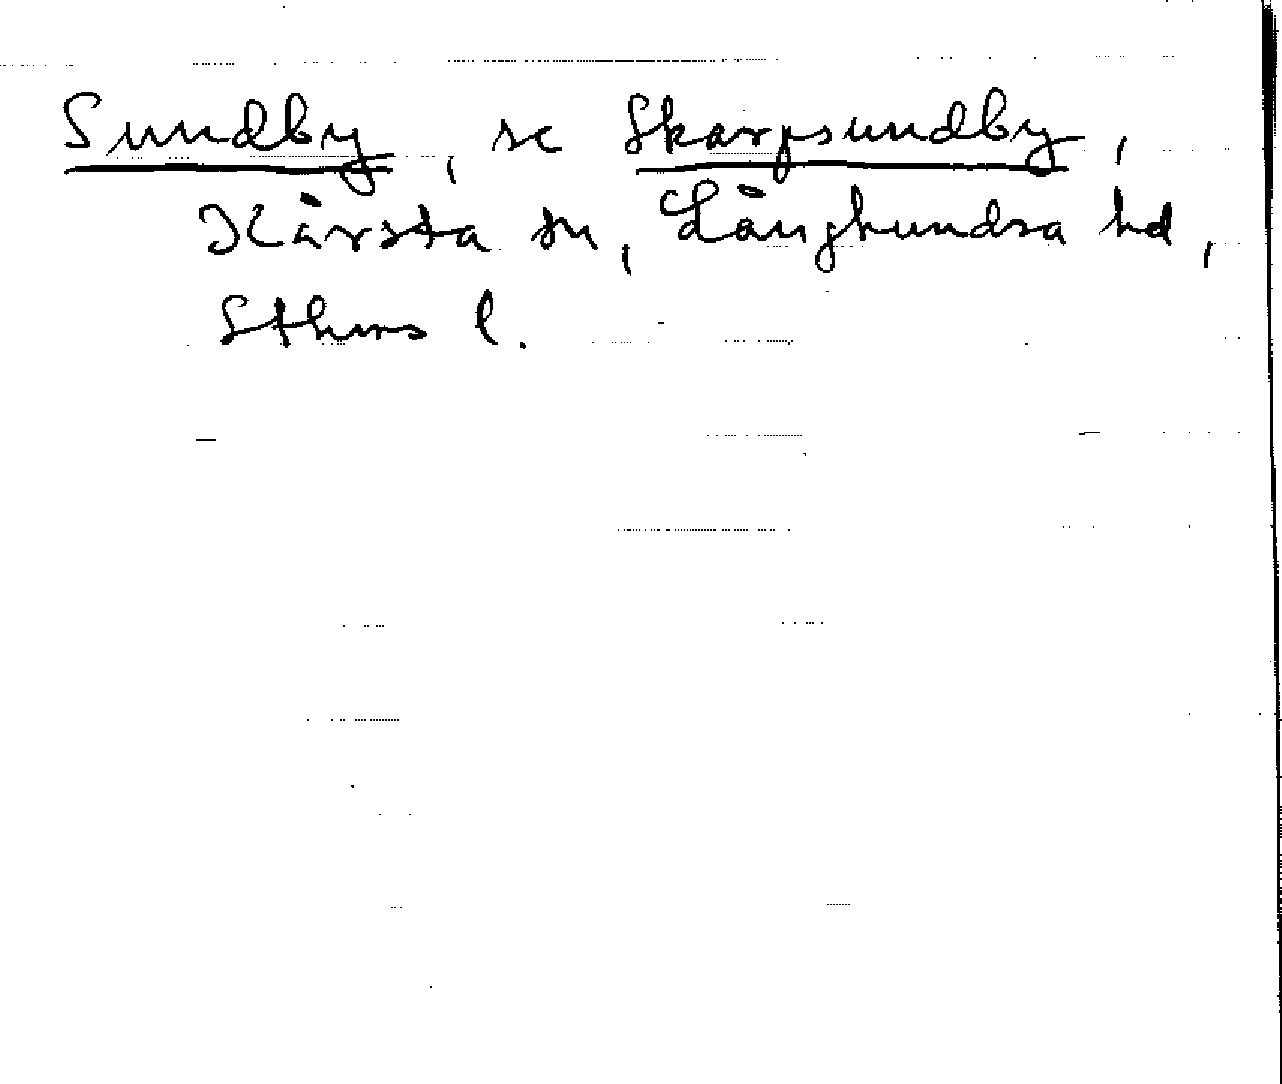 Sundby, se Skarpsundby,
Kårsta sn, Långhundra hd,
Sthms l.